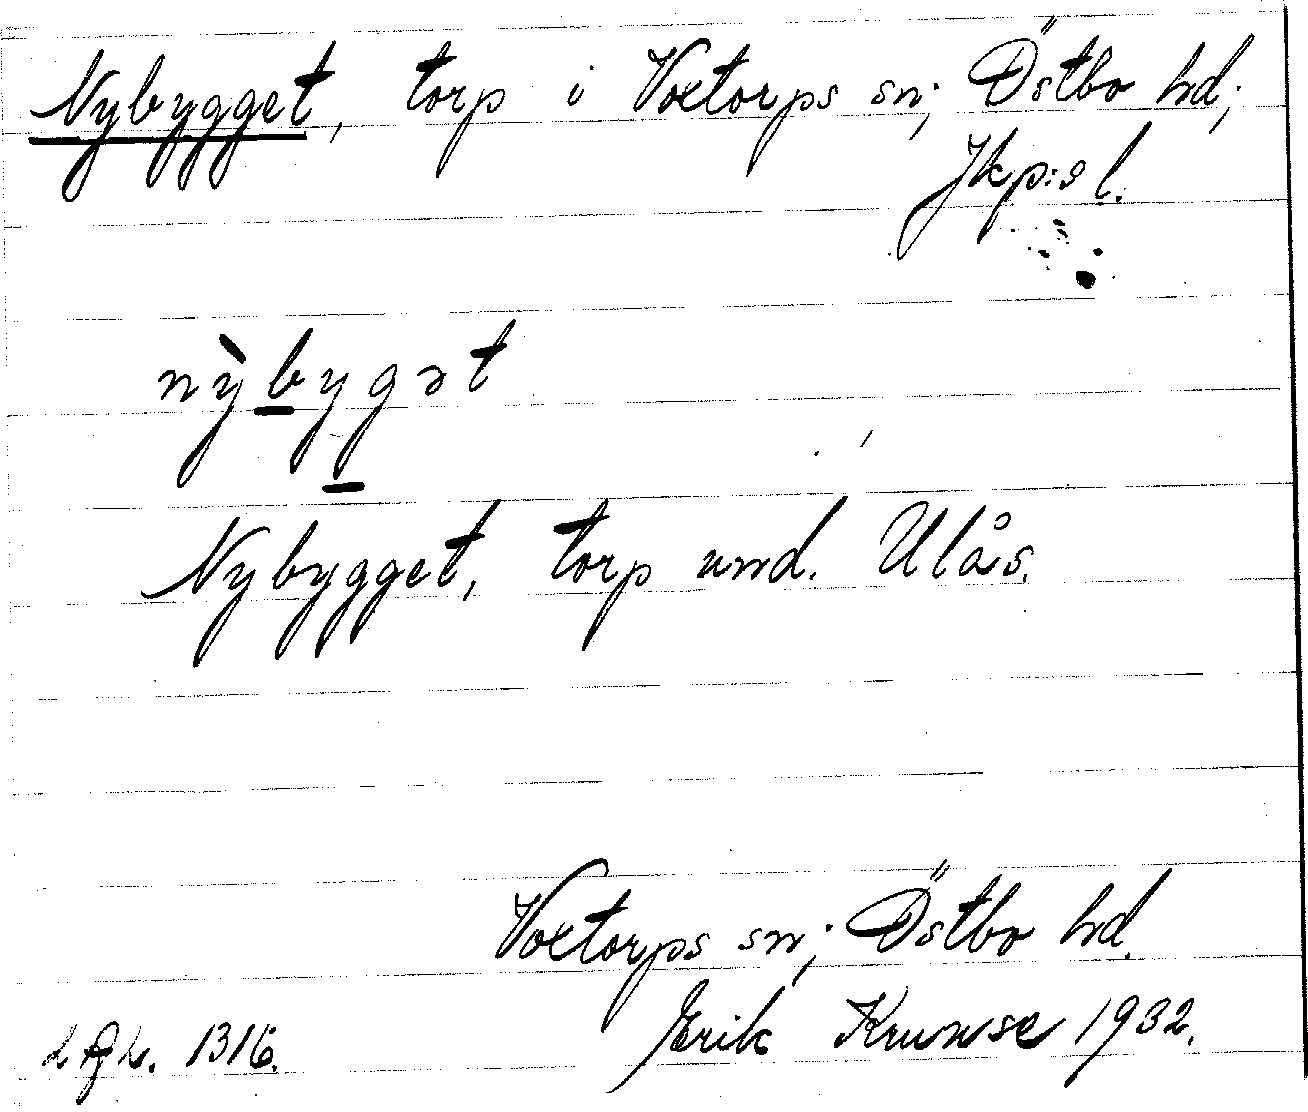 Nybygget, torp i Voxtorps sn; Östbo hd;
Jkp:s l.
nỳbygət
Nybygget, torp und. Ulås.
Voxtorps sn; Östbo hd.
1316. Erik Krunse 1932.